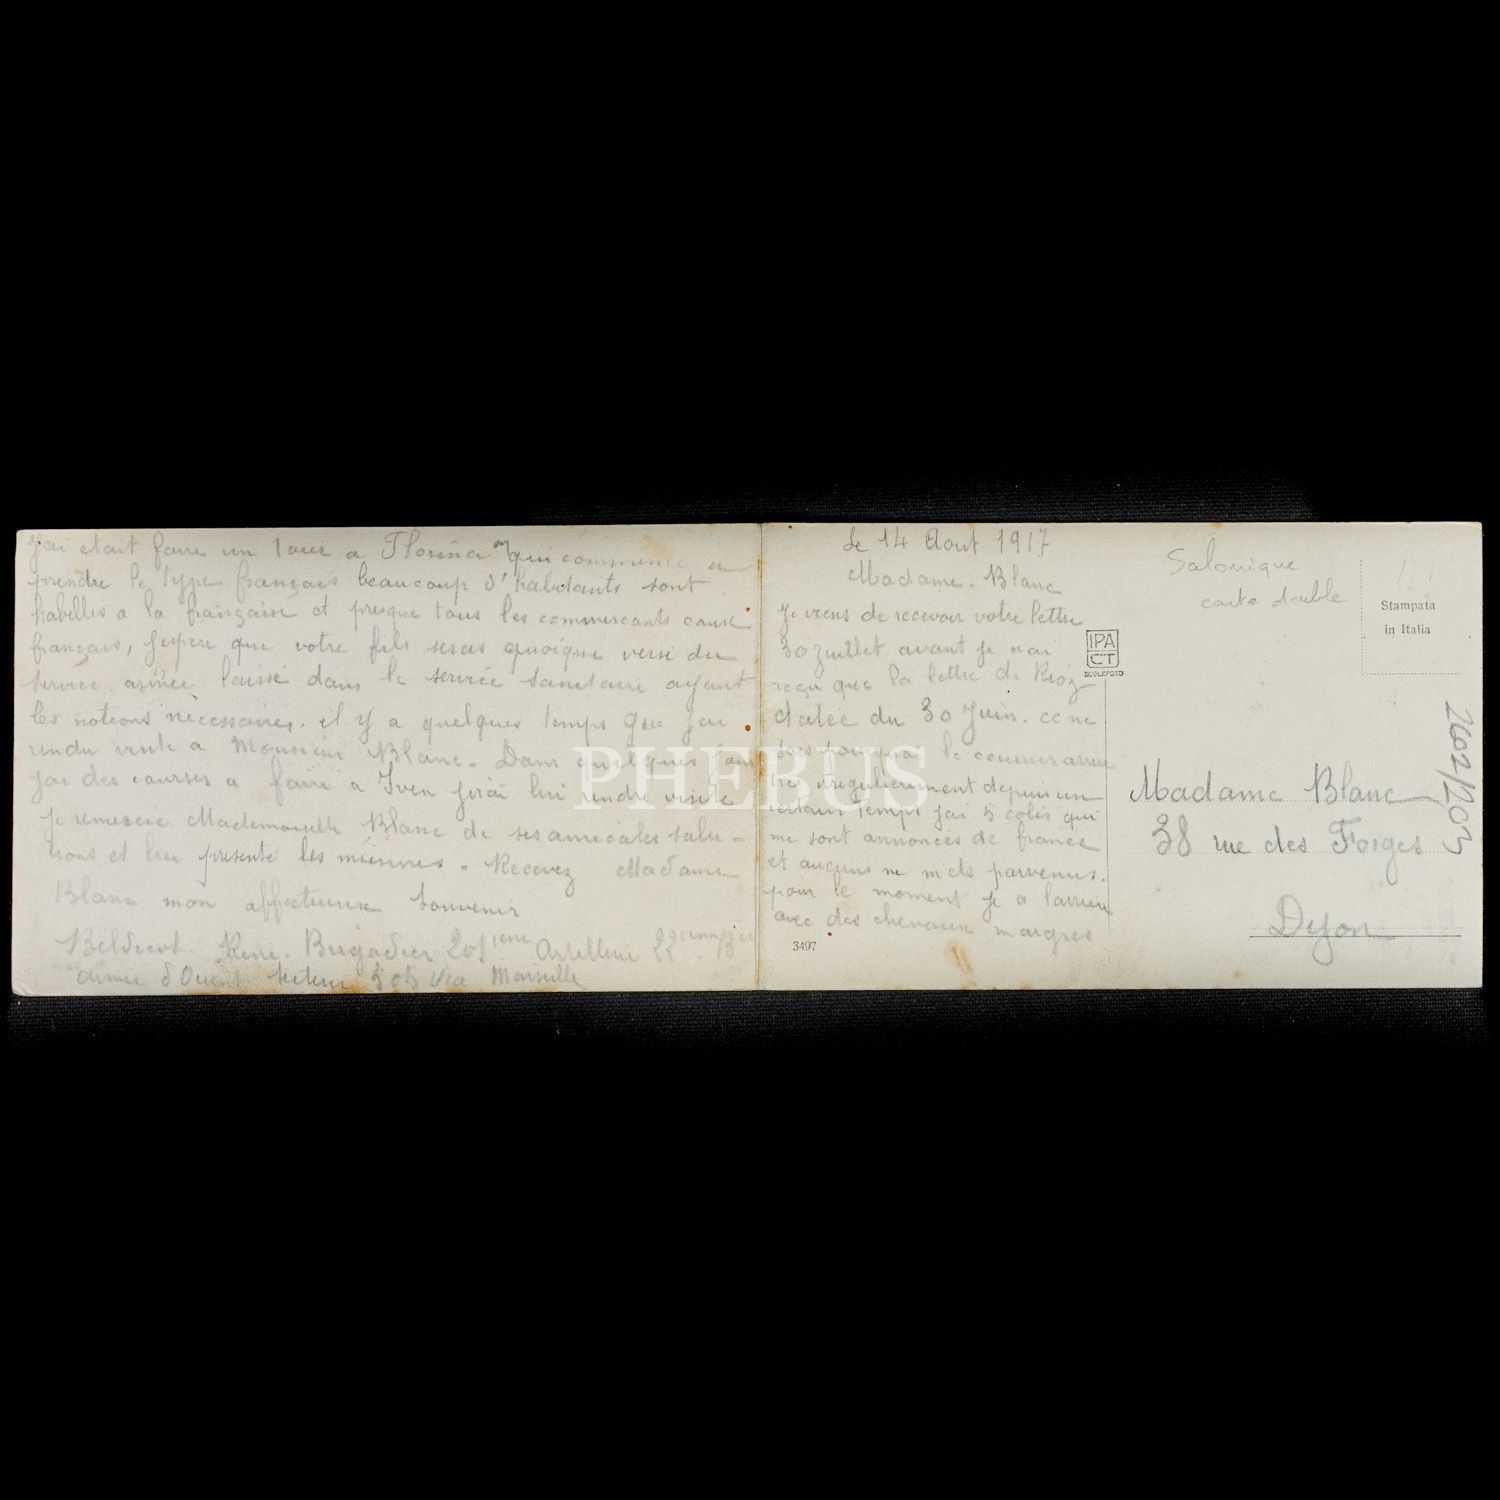 le 14 Aout 1917
Madame. Blanc
Je viens de recevoir votre lettre
30 juillet. avant je nai
reçu que la lettre de Rioz
datée du 30 Juin. ce ne
pourquoi le courrier arrive
irregulierement depuis un
certain temps jai 5 colis qui
me sont annoncés de france
et aucuns ne mets parvenus.
pour le moment je a larriere
avec des chevaux maigres
j'ai etait faire un tour a Florina qui commence a
prendre le type français beaucoup d'habitants sont
habilles a la française et presque tous les commercants cause
français, jespere que votre fils seras quoique versé du
service armée laissé dans le service sanitaire ayant
les notions nécessaires. il y a quelques temps que jai
rendu visite a Monsieur Blanc. Dans quelques jours
jai des courses a faire a Iven jirai lui rendre visite
Je remercie Mademoiselle Blanc de ses amicales salu-
tions et leur presente les miennes. Recevez Madame
Blanc mon affectueux souvenir
René. Brigadier 201ieme Artillerie 22
armée d'Orient secteur 505 Via Marseille
Salonique
carte double
Stampata
in Italia
IPA
CT
DUBLEFOTO
Madame Blanc
38 rue des Forges
Dijon
2602/1203
3497
PHEBUS